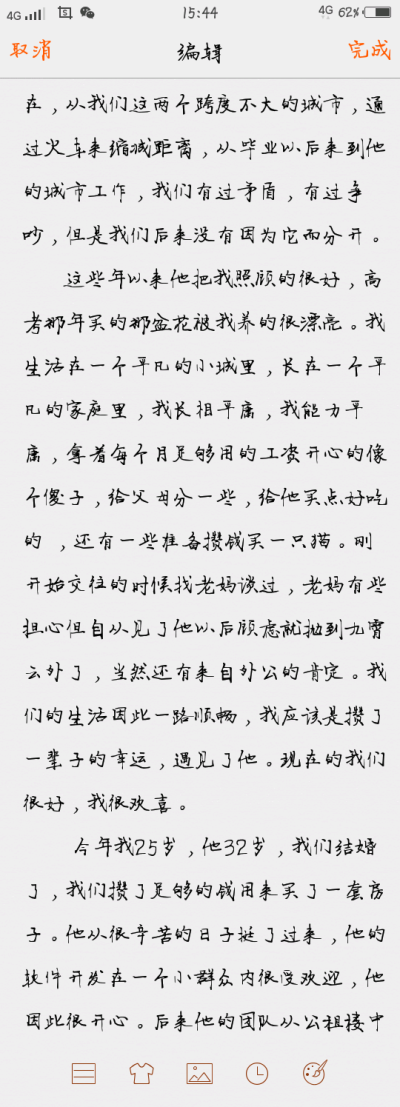 4G 15:44 4G 62%
取消 编辑 完成
在，从我们这两个跨度不大的城市，通
过火车来缩减距离，从毕业以后来到他
的城市工作，我们有过矛盾，有过争
吵，但是我们后来没有因为它而分开。
这些年以来他把我照顾的很好，高
考那年买的那盆花被我养的很漂亮。我
生活在一个平凡的小城里，长在一个平
凡的家庭里，我长相平庸，我能力平
庸，拿着每个月足够用的工资开心的像
个傻子，给父母分一些，给他买点好吃
的 ，还有一些准备攒钱买一只猫。刚
开始交往的时候找老妈谈过，老妈有些
担心但自从见了他以后顾虑就抛到九霄
云外了，当然还有来自外公的肯定。我
们的生活因此一路顺畅，我应该是攒了
一辈子的幸运，遇见了他。现在的我们
很好，我很欢喜。
今年我25岁，他32岁，我们结婚
了，我们攒了足够的钱用来买了一套房
子。他从很辛苦的日子挺了过来，他的
软件开发在一个小群众内很受欢迎，他
因此很开心。后来他的团队从公租楼中